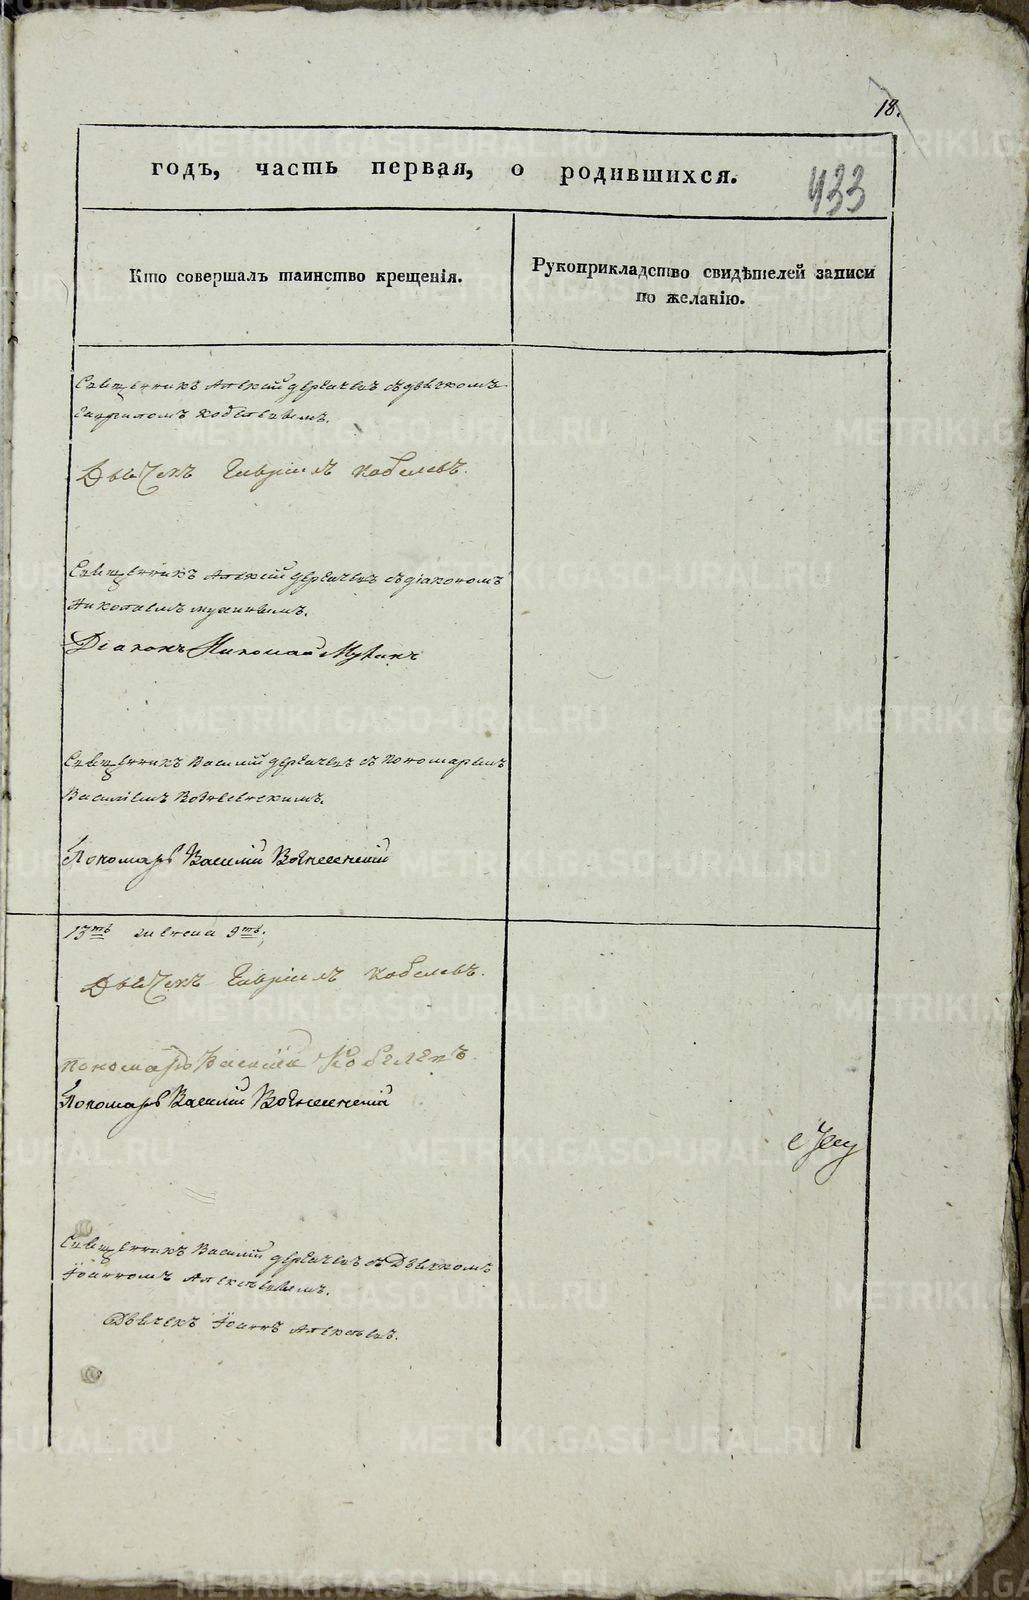 18.
годъ, часть первая, о родившихся.
433
Кто совершалъ таинство крещенія.
Рукоприкладство свидѣтелей записи
по желанію.
Священникъ Алексій Дерябинъ съ дьячкомъ
Гавріиломъ Кобелевымъ.
Дьячекъ Гавріилъ Кобелевъ.
Священникъ Алексій Дерябинъ съ діакономъ
Николаемъ Мухинымъ.
Діаконъ Николай Мухинъ
Священникъ Василій Дерябинъ съ пономаремъ
Василіемъ Вознесенскимъ.
Пономарь Василій Вознесенскій
13ть женска 9ть.
Дьячекъ Гавріилъ Кобелевъ.
Пономарь Василій Кобелевъ.
Пономарь Василій Вознесенскій
Священникъ Василій Дерябинъ съ Дьячкомъ
Іоанномъ Алексѣевымъ.
Дьячекъ Іоаннъ Алексѣевъ.
METRIKI.GASO-URAL.RU